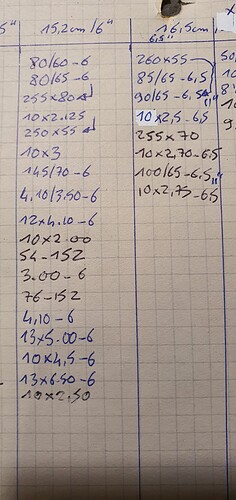 5"
15,2cm/6"
80/60-6
80/65-6
255x80
10x2.125
250x55
10x3
145/70-6
4.10/3.50-6
12x4.10-6
10x2.00
54-152
3.00-6
76-152
4,10-6
13x5.00-6
10x4,5-6
13x6.50-6
10x2.50
16,5cm
6,5"
260x55
85/65-6,5
90/65-6,5
10x2,5-6,5
255x70
10x2,70-6.5
100/65-6,5"
10x2,75-6,5
50